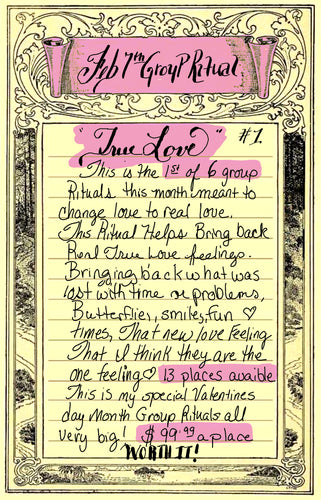 Feb 7th Group Ritual
"True Love" #1
This is the 1st of 6 group
Rituals this month meant to
change love to real love.
This Ritual Helps Bring back
Real True Love feelings.
Bringing back what was
lost with time or problems,
Butterflies, smiles, fun ♡
times, That new love feeling
That i think they are the
one feeling♡ 13 places avaible
This is my special Valentines
day Month Group Rituals all
very big! $99.99 a place
WORTH IT!